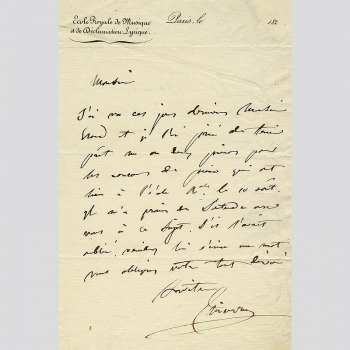 Ecole Royale de Musique Paris, le 182
et de Déclamation Lyrique.
Monsieur
J'ai vu ces jours derniers Monsieur
Erard et je l'ai prié de tenir
prêt un ou deux pianos pour
les concours de piano qui ont
lieu à l'école Rle le 10 août.
il m'a promis de s'entendre avec
vous à ce sujet. S'il l'avait
oublié, veuillez lui écrire un mot
vous obligerez votre tout dévoué
Serviteur